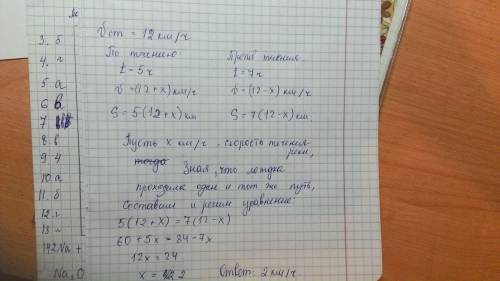 3. б
4. г
5. а
6 в
7
8. в
9. ч
10. а
11. б
12. г
13. г
142 Na +
Na₂O
Vст = 12 км/ч
По течению
t = 5 ч
v = (12 + x) км/ч
S = 5(12 + x) км
Против течения.
t = 7 ч
v = (12 - x) км/ч
S = 7(12 - x) км
Пусть x км/ч - скорость течения реки,
тогда Зная, что лодка
проходила один и тот же путь,
составим и решим уравнение:
5(12 + x) = 7(12 - x)
60 + 5x = 84 - 7x
12x = 24
x = 2
Ответ: 2 км/ч